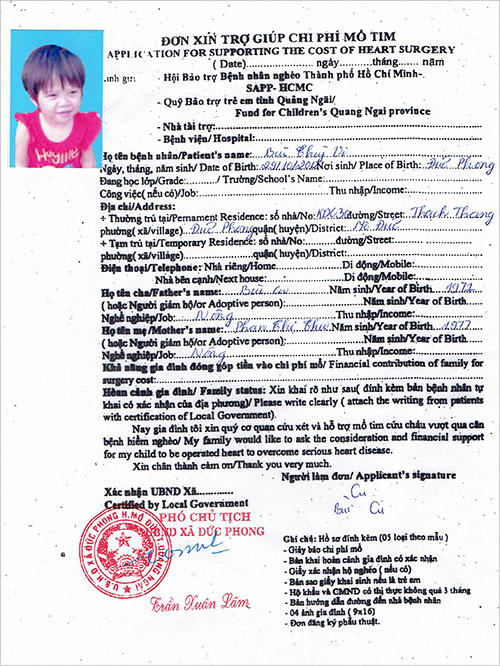 ĐƠN XIN TRỢ GIÚP CHI PHÍ MỔ TIM
APPLICATION FOR SUPPORTING THE COST OF HEART SURGERY
( Date)..................... ngày...........tháng....... năm
Kính gửi - Hội Bảo trợ Bệnh nhân nghèo Thành phố Hồ Chí Minh-
SAPP- HCMC
- Quỹ Bảo trợ trẻ em tỉnh Quảng Ngãi/
Fund for Children's Quang Ngai province
- Nhà tài trợ:
- Bệnh viện/ Hospital:
Họ tên bệnh nhân/Patient's name: Bùi Thuý Vi
Ngày, tháng, năm sinh/ Date of Birth: 29/10/201 Nơi sinh/ Place of Birth: Đức Phong
Đang học lớp/Grade:........../ Trường/School's Name:
Công việc( nếu có)/Job: Thu nhập/Income:
Địa chỉ/Address:
+ Thường trú tại/Pernament Residence: số nhà/No: KDC 3 đường/Street: Thạch Thang
phường( xã/village) Đức Phong quận( huyện)/District: Mộ Đức
+ Tạm trú tại/Temporary Residence: số nhà/No: đường/Street:
phường( xã/village) quận( huyện)/District:
Điện thoại/Telephone: Nhà riêng/Home Di động/Mobile:
Nhà bên cạnh/Next house: Di động/Mobile:
Họ tên cha/Father's name: Bùi Cu Năm sinh/Year of Birth 1971
( hoặc Người giám hộ/or Adoptive person): Năm sinh/Year of Birth
Nghề nghiệp/Job: Nông Thu nhập/Income:
Họ tên mẹ/Mother's name: Phan Thị Thu Năm sinh/Year of Birth 1977
( hoặc Người giám hộ/or Adoptive person): Năm sinh/Year of Birth
Nghề nghiệp/Job: Nông Thu nhập/Income:
Khả năng gia đình đóng góp tiền vào chi phí mổ/ Financial contribution of family for
surgery cost:
Hoàn cảnh gia đình/ Family status: Xin khai rõ như sau( đính kèm bản bệnh nhân tự
khai có xác nhận của địa phương)/ Please write clearly ( attach the writing from patients
with certification of Local Government).
Nay gia đình tôi xin quý cơ quan cứu xét và hỗ trợ mổ tim cứu cháu vượt qua căn
bệnh hiểm nghèo/ My family would like to ask the consideration and financial support
for my child to be operated heart to overcome serious heart disease.
Xin chân thành cảm ơn/Thank you very much.
Người làm đơn/ Applicant's signature
Xác nhận UBND Xã............
Certified by Local Government
Cu
Bùi Cu
PHÓ CHỦ TỊCH
UBND XÃ ĐỨC PHONG
U.B.N.D XÃ ĐỨC PHONG H. MỘ ĐỨC T. QUẢNG NGÃI
Trần Xuân Lâm
Ghi chú: Hồ sơ đính kèm (05 loại theo mẫu )
- Giấy báo chi phí mổ
- Bản khai hoàn cảnh gia đình có xác nhận
- Giấy xác nhận hộ nghèo ( nếu có)
- Bản sao giấy khai sinh nếu là trẻ em
- Hộ khẩu và CMND có thị thực không quá 3 tháng
- Bản hướng dẫn đường đến nhà bệnh nhân
- 04 ảnh gia đình ( 9x16)
- Đơn đăng ký phẫu thuật.